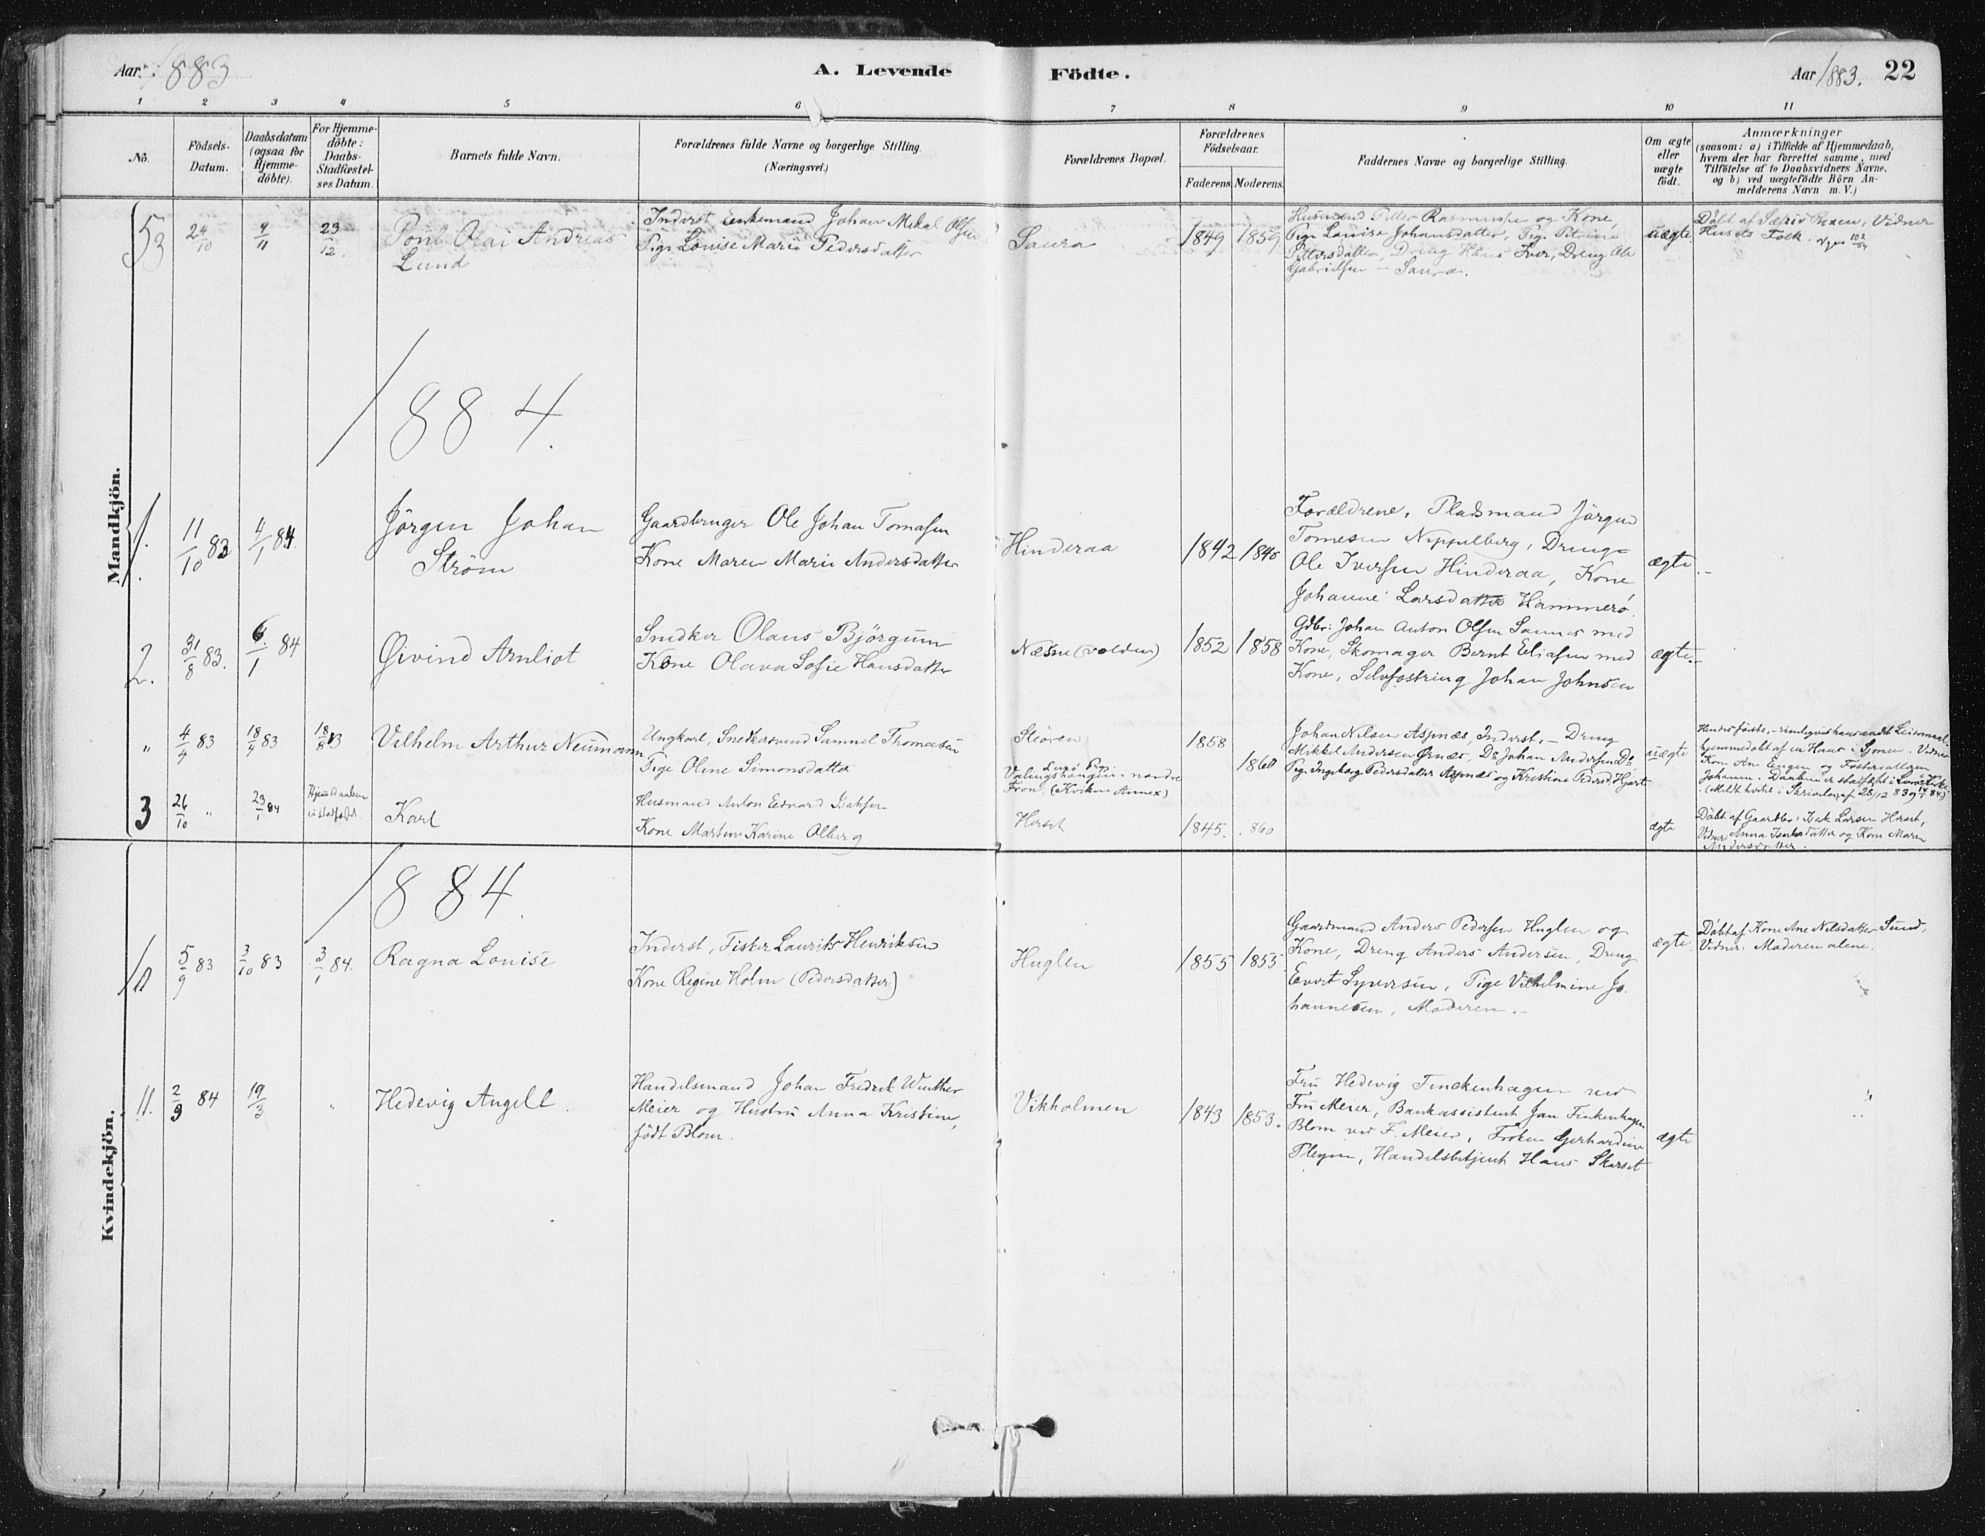 Aar 1883
A. Levende Födte.
Aar 1883. 22
1 2 3 4 5 6 7 8 9 10 11
No.
Födsels-Datum.
Daabsdatum (ogsaa for Hjemme-döbte).
For Hjemme-döbte: Daabs-Stadfæstel-ses Datum.
Barnets fulde Navn.
Forældrenes fulde Navne og borgerlige Stilling.
(Næringsvei.)
Forældrenes Bopæl.
Forældrenes Födselsaar.
Faderens. Moderens.
Faddernes Navne og borgerlige Stilling.
Om ægte eller uægte födt.
Anmærkninger
(saasom: a) i Tilfælde af Hjemmedaab,
hvem der har forrettet samme, med
Tilföielse af to Daabsvidners Navne,
og b) ved uægtefödte Börn An-
melderens Navn m. V.)
Mandkjön.
53 24/10 9/11 23/12.
Pont Olai Andreas
Lund
Inderst, Enkemand Johan Mikal Olsen
Pige Louise Marie Pedersdatter
Saura
1849 1859
Husmand Petter Rasmussen og Kone,
Pige Louise Johansdatter, Pige Petrine
Pettersdatter, Dreng Hans Iver, Dreng Ole
Gabrielsen - Saura.
uægte
Döbt af Vidner
Husets Folk.
1884.
1. 11/10 83 4/1 84
Jörgen Johan
Ström
Gaardbruger Ole Johan Tomasen
Kone Maren Marie Andersdatter
Hinderaa
1842 1840
Forældrene, Pladsmand Jörgen
Tomesen Nippelberg, Dreng
Ole Iversen Hinderaa, Kone
Johanne Larsdatter Hammerö.
ægte.
2. 31/8 83. 6/1 84
Øivind Arnliot
Snedker Olaus Bjørgum
Kone Olava Sofie Hansdatter
Næsne (volden)
1852 1858
Gdbr: Johan Anton Olsen Saunes med
Kone, Skomager Bernt Eliasen med
Kone, Selvfostring Johan Johnsen
ægte.
" 4/4 83 18/4 83 18/8 83
Vilhelm Arthur Neumann
Ungkarl, Snedkersvend Samuel Thomesen
Pige Oline Simonsdatter
Støren
Fron. (Kvikne Annex)
1858
1860
Johan Nilsen Aspnæs, Inderst, - Dreng
Mikkel Andersen Ørnes, Do Johan Andersen Do
Pige Ingeborg Pedersdatter Aspnæs og Kristine Pedersd Hjart
uægte
hjemmedøbt af en Hans i Sjonen. Vidner
Kone Ane Engen og Fostersøsteren
Johanna. Daaben er stadfæst i Lurø Kirke
3 26/10 " 23/1 84
Hjemmedaaben
ei stadfæstet.
Karl
Husmand Anton Edvard
Kone Martine Karine Olberg
Herset
1845. 1860
ægte
Döbt af Gaardbr: Isak Larsen Herset,
Vidner Anna Isaksdatter og Kone Maren
Andersdatter.
Kvindekjön.
1884.
10 5/9 83 3/10 83 3/1 84.
Ragna Louise
Inderst, Fisker Laurits Henriksen
Kone Regine Holm (Pedersdatter)
Huglen
1855 1855
Gaardmand Anders Pedersen Huglen og
Kone, Dreng Anders Andersen, Dreng
Evert Syversen, Pige Vilhelmine Jo-
hannesen, Moderen.
ægte.
Döbt af Kone Ane Nilsdatter Sund,
Vidner: Moderen alene.
11. 2/9 84 19/3 "
Hedevig Angell.
Handelsmand Johan Fredrik Winther
Meier og Hustru Anna Kristine,
född Blom.
Vikholmen
1843 1853.
Fru Hedevig Finckenhagen ved
Fru Meier, Bankassistent Jan Finkenhagen
Blom ved F. Meier, Frøken Gerhardine
Pleym, Handelsbetjent Hans Skarset
ægte